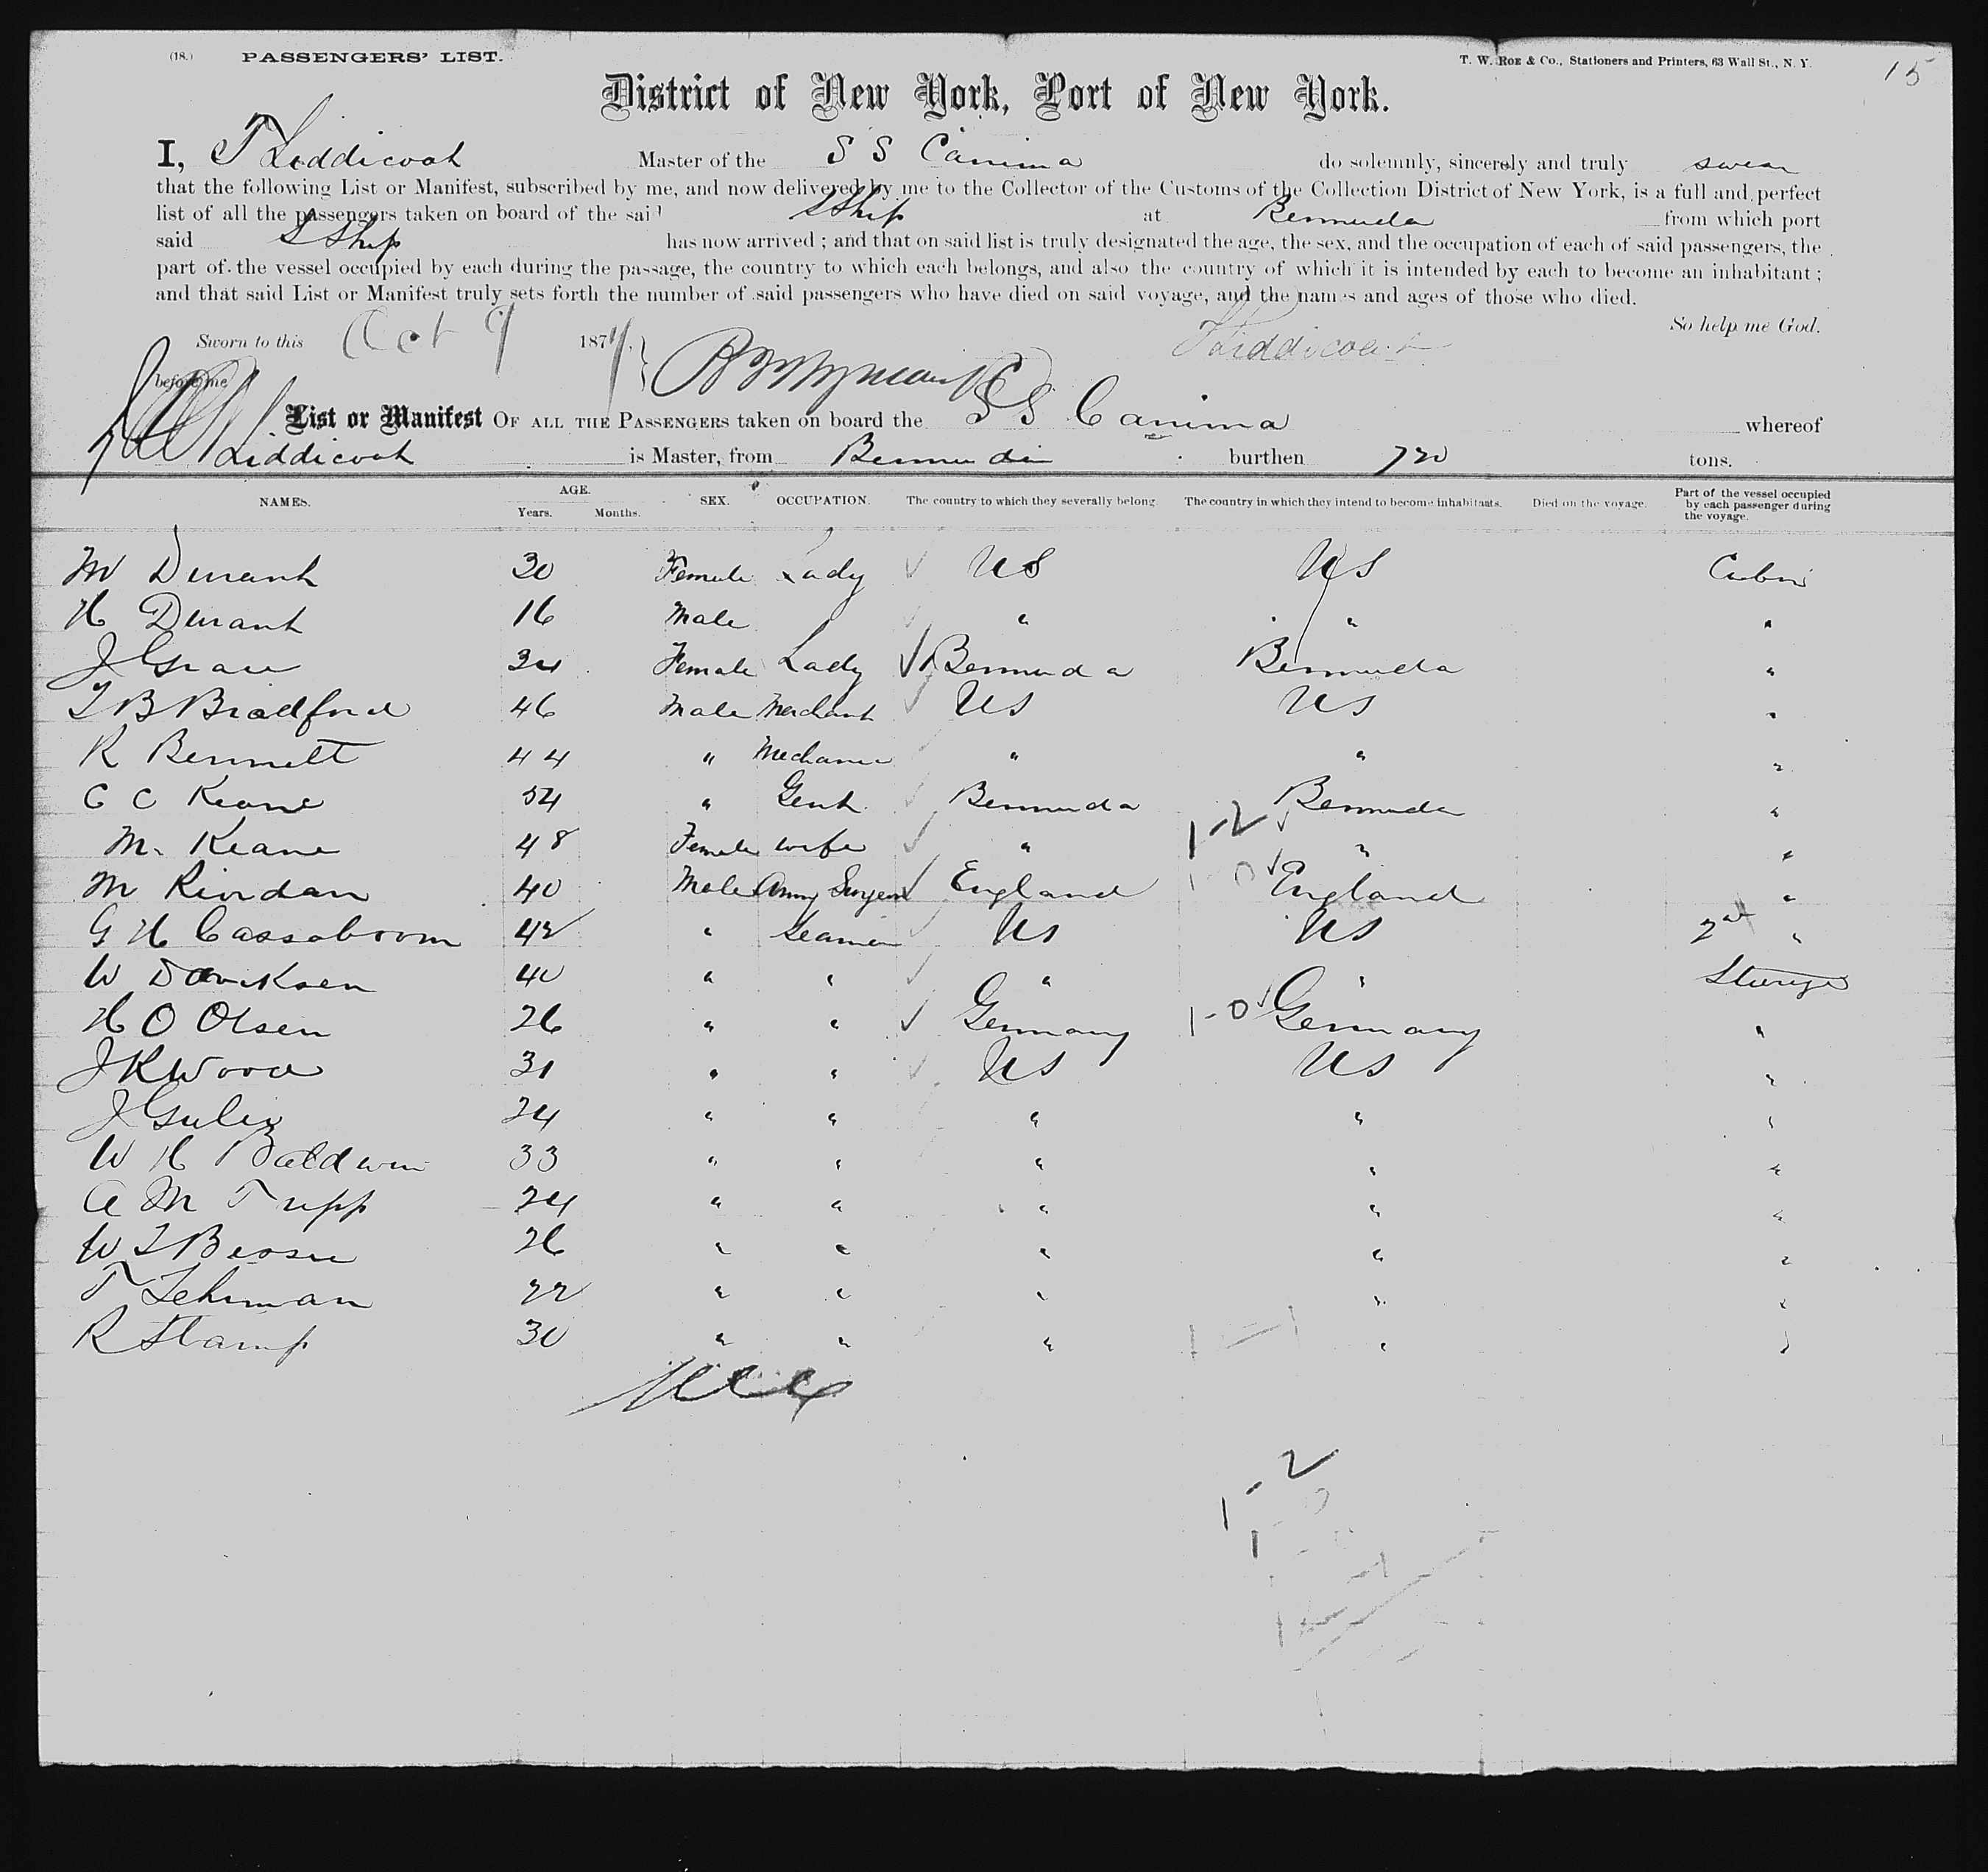 (18.) PASSENGERS' LIST. T. W. ROE & Co., Stationers and Printers, 63 Wall St., N. Y. 15
District of New York, Port of New York.
I, T Liddicoat Master of the S S Canima do solemnly, sincerely and truly swear
that the following List or Manifest, subscribed by me, and now delivered by me to the Collector of the Customs of the Collection District of New York, is a full and perfect
list of all the passengers taken on board of the said SShip at Bermuda from which port
said SShip has now arrived; and that on said list is truly designated the age, the sex, and the occupation of each of said passengers, the
part of the vessel occupied by each during the passage, the country to which each belongs, and also the country of which it is intended by each to become an inhabitant;
and that said List or Manifest truly sets forth the number of said passengers who have died on said voyage, and the names and ages of those who died.
So help me God.
Sworn to this Oct 9 187 TLiddicoat
before me
List or Manifest OF ALL THE PASSENGERS taken on board the S S Canima whereof
Liddicoat is Master, from Bermuda burthen 720 tons.
NAMES. AGE. Years. Months. SEX. OCCUPATION. The country to which they severally belong. The country in which they intend to become inhabitants. Died on the voyage. Part of the vessel occupied by each passenger during the voyage.
M Durant 30 Female Lady US US Cabin
H Durant 16 Male " " "
J Grace 34 Female Lady Bermuda Bermuda "
T B Bradford 46 Male Merchant US US "
R Bennett 44 " Mechanic " " "
C C Keane 54 " Gent Bermuda Bermuda "
M. Keane 48 Female wife " 1-2 " "
M Riordan 40 Male Army Surgeon England 1-0 England "
G H Cassaboom 42 " Seaman US US 2nd "
W Davidsen 40 " " " " Steerage
H O Olsen 26 " " Germany 1-0 Germany "
J K Wood 31 " " US US "
J Gulix 24 " " " " "
W H Baldwin 33 " " " " "
A M Tripp 24 " " " " "
W T Besse 26 " " " " "
T Lehman 22 " " " " "
R Stamp 30 " " " " "
1-2